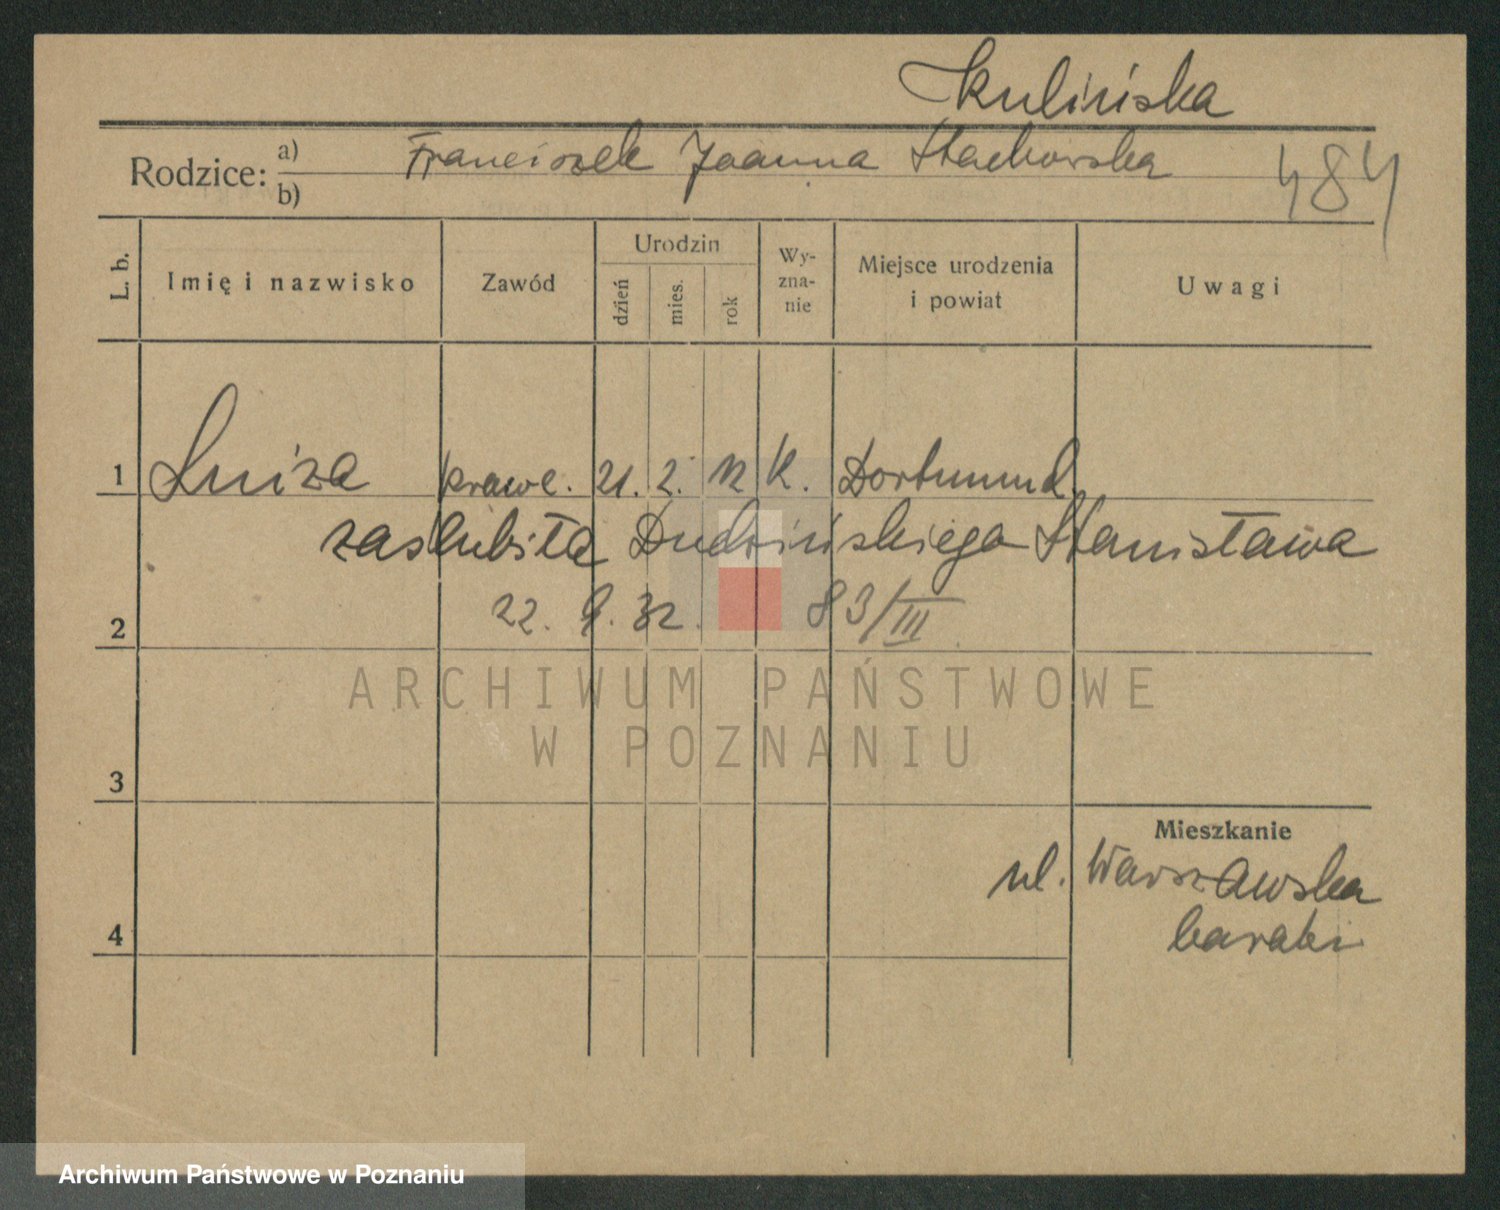 Skulińska
Rodzice: a) Franciszek Joanna Stachowska
b)
484
L. b. Imię i nazwisko Zawód Urodzin dzień mies. rok Wy-zna-nie Miejsce urodzenia i powiat Uwagi
1 Luiza krawc. 21. 2. 12 K. Dortmund
zaslubiła Dudzińskiego Stanisława
2 22. 9. 32. 83/III
ARCHIWUM PAŃSTWOWE
W POZNANIU
3
Mieszkanie
ul. Warszawska
baraki
4
Archiwum Państwowe w Poznaniu